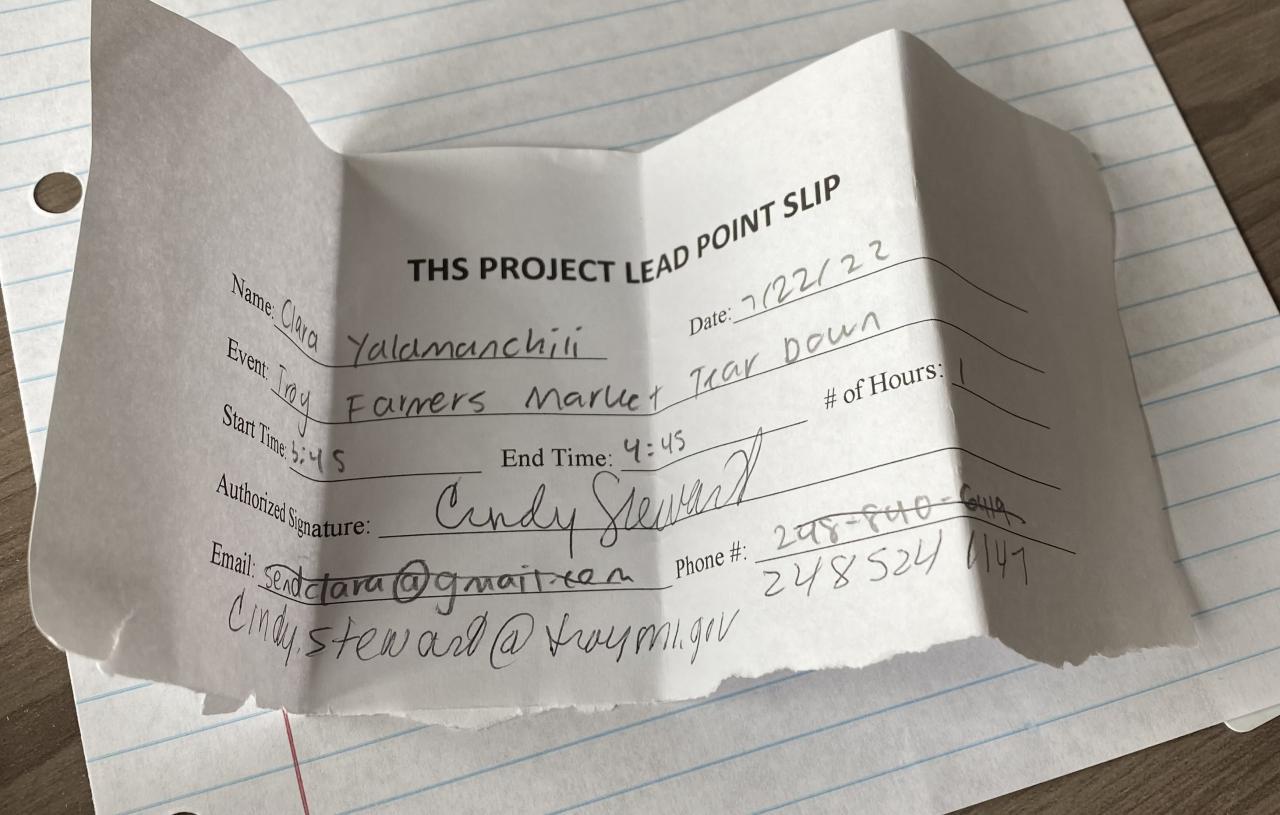 THS PROJECT LEAD POINT SLIP
Name: Clara Yalamanchili Date: 7/22/22
Event: Troy Farmers Market Tear Down
Start Time: 3:45 End Time: 4:45 # of Hours: 1
Authorized Signature: Cindy Steward
Email: sendclara@gmail.com Phone #: 298-840-
Cindy.steward@troymi.gov 248 524 1147